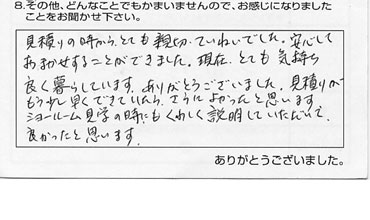 8.その他、どんなことでもかまいませんので、お感じになりました
ことをお聞かせ下さい。
見積りの時から、とても親切、ていねいでした。安心して
おまかせすることができました。現在、とても気持ち
良く暮らしています。ありがとうございました。見積りが
もう少し早くできていたら、さらによかったと思います。
ショールーム見学の時にもくわしく説明していただいて、
良かったと思います。
ありがとうございました。